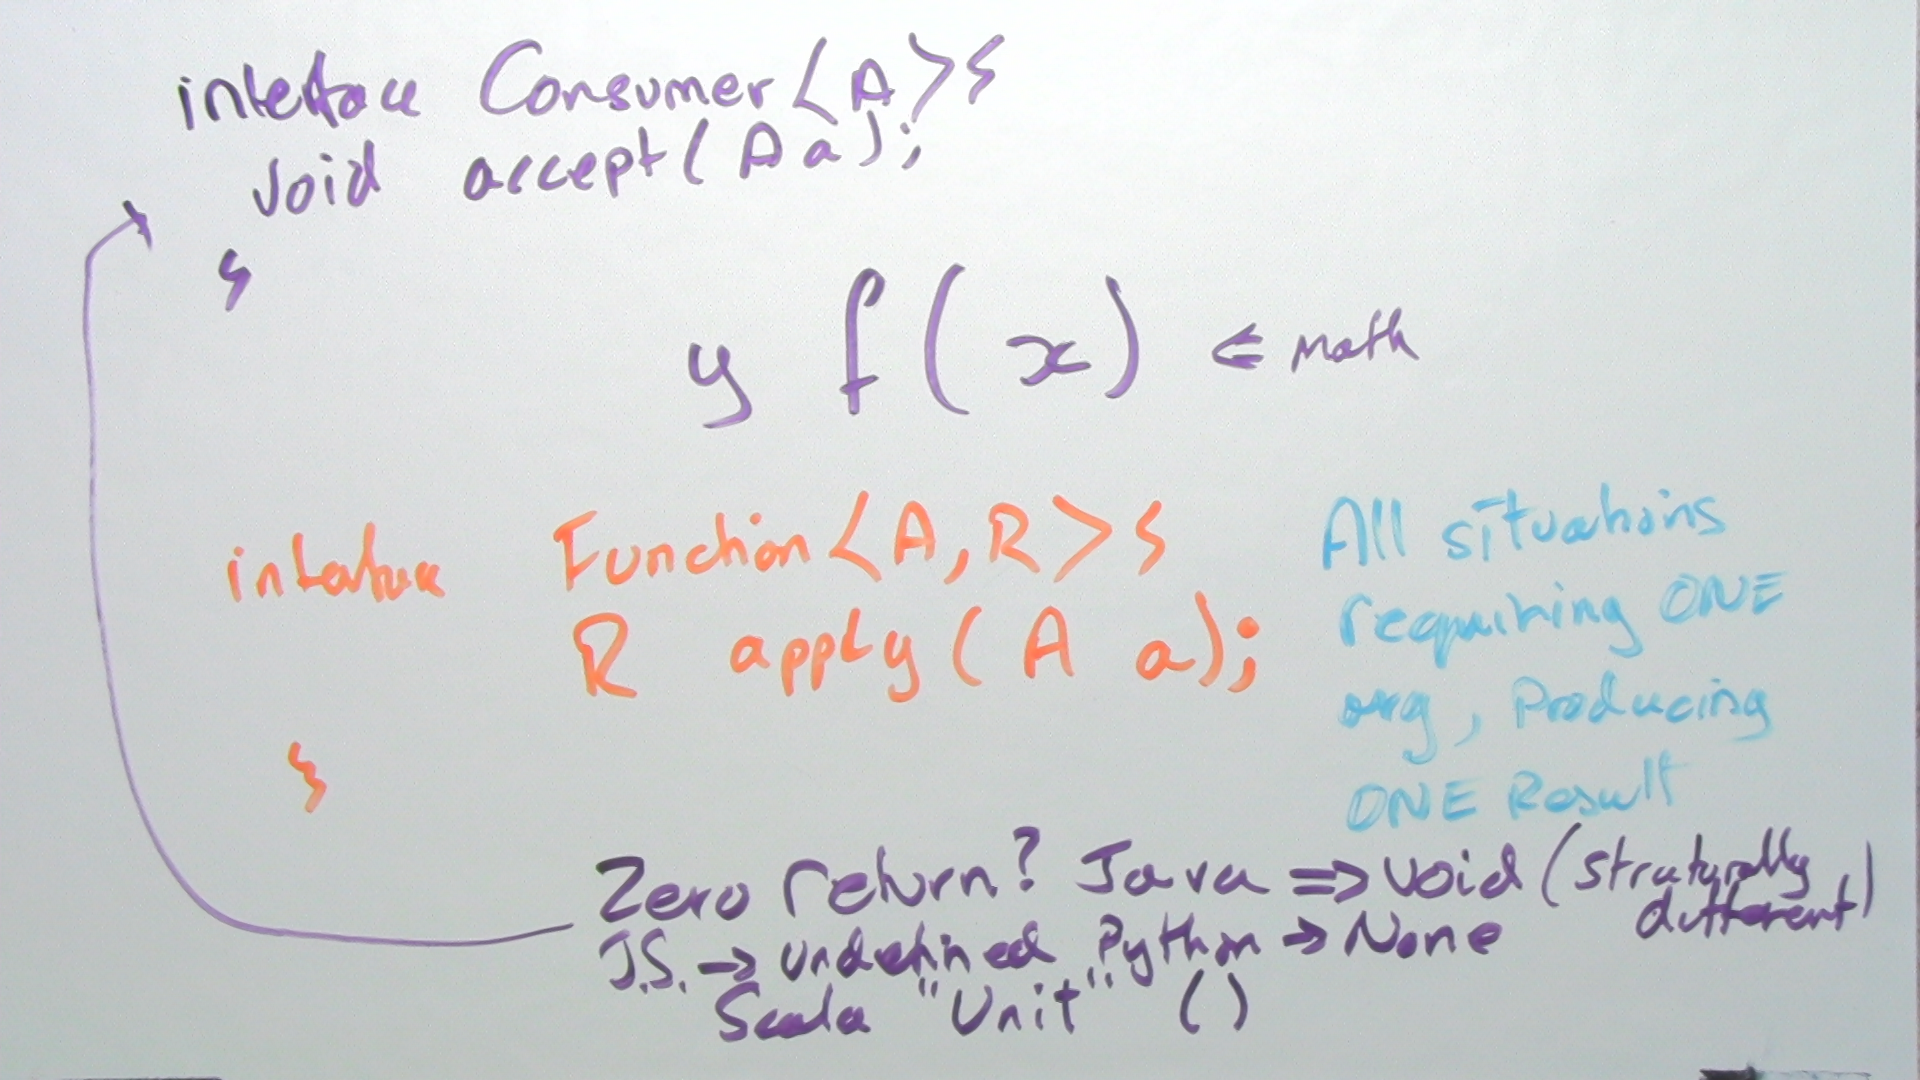 interface Consumer<A>{
void accept(A a);
}
y f(x) ⇐ math
interface Function<A,R>{
R apply(A a);
}
All situations
requiring ONE
arg, Producing
ONE Result
Zero return? Java => void (structurally different)
J.S. -> undefined Python -> None
Scala "Unit" ()